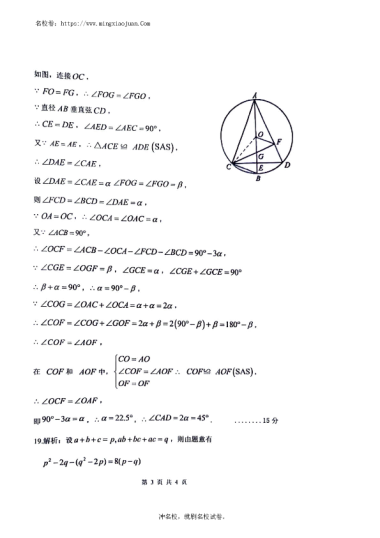 名校卷：https://www.mingxiaojuan.Com
如图，连接OC，
∵ FO=FG，∴ ∠FOG=∠FGO，
∵ 直径 AB 垂直弦CD，
∴ CE=DE，∠AED=∠AEC=90°，
又∵ AE=AE，∴ △ACE≌ ADE (SAS)，
∴ ∠DAE=∠CAE，
设∠DAE=∠CAE=α ∠FOG=∠FGO=β，
则∠FCD=∠BCD=∠DAE=α，
∵ OA=OC，∴ ∠OCA=∠OAC=α，
又∵ ∠ACB=90°，
∴ ∠OCF=∠ACB-∠OCA-∠FCD-∠BCD=90°-3α，
∵ ∠CGE=∠OGF=β，∠GCE=α，∠CGE+∠GCE=90°
∴ β+α=90°，∴ α=90°-β，
∵ ∠COG=∠OAC+∠OCA=α+α=2α，
∴ ∠COF=∠COG+∠GOF=2α+β=2(90°-β)+β=180°-β，
∴ ∠COF=∠AOF，
在 COF 和 AOF 中，{CO=AO
∠COF=∠AOF ∴ COF≌ AOF(SAS)，
OF=OF
∴ ∠OCF=∠OAF，
即90°-3α=α，∴ α=22.5°，∴ ∠CAD=2α=45°． ........15 分
19.解析：设 a+b+c=p,ab+bc+ac=q，则由题意有
p²-2q-(q²-2p)=8(p-q)
A
O
F
G
C
E
D
B
第 3 页 共 4 页
冲名校，就刷名校试卷。